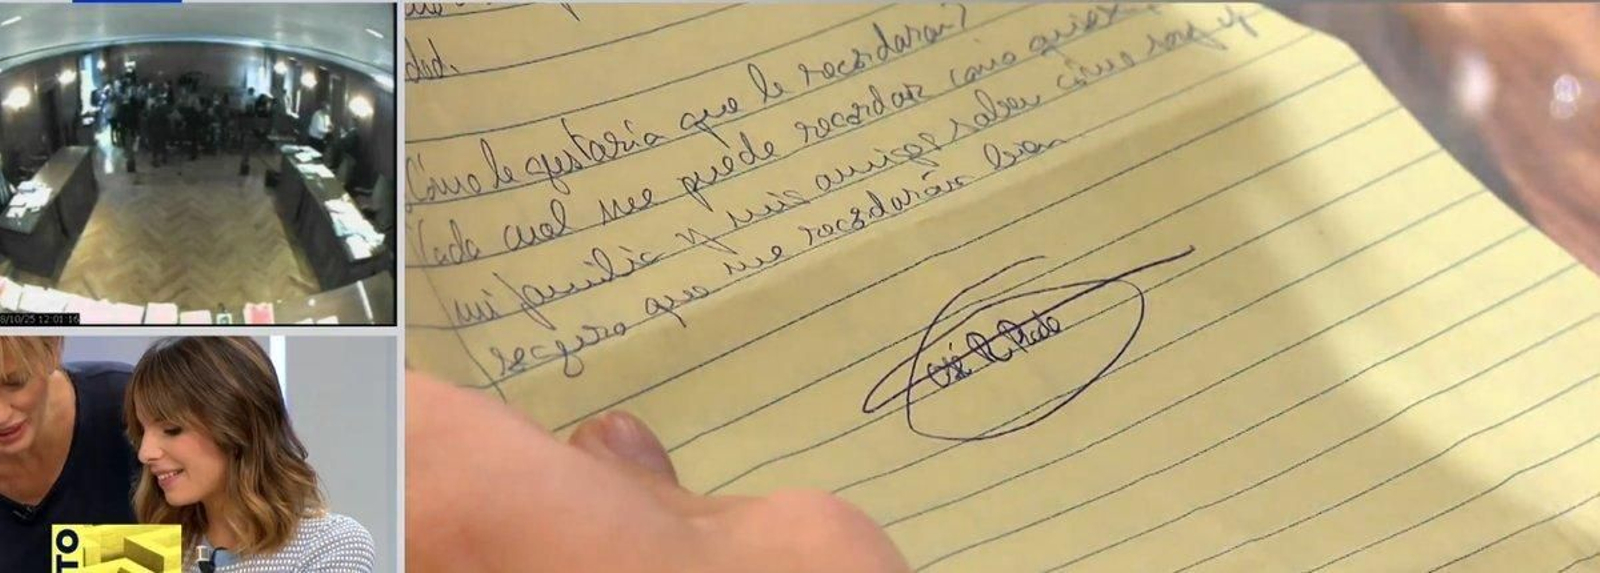 dad.
Cómo le gustaría que le recordaran?
Cada cual me puede recordar como quiera
mi familia y mis amigos saben cómo soy y
seguro que me recordarán bien
8/10/25 12:01:16
TO